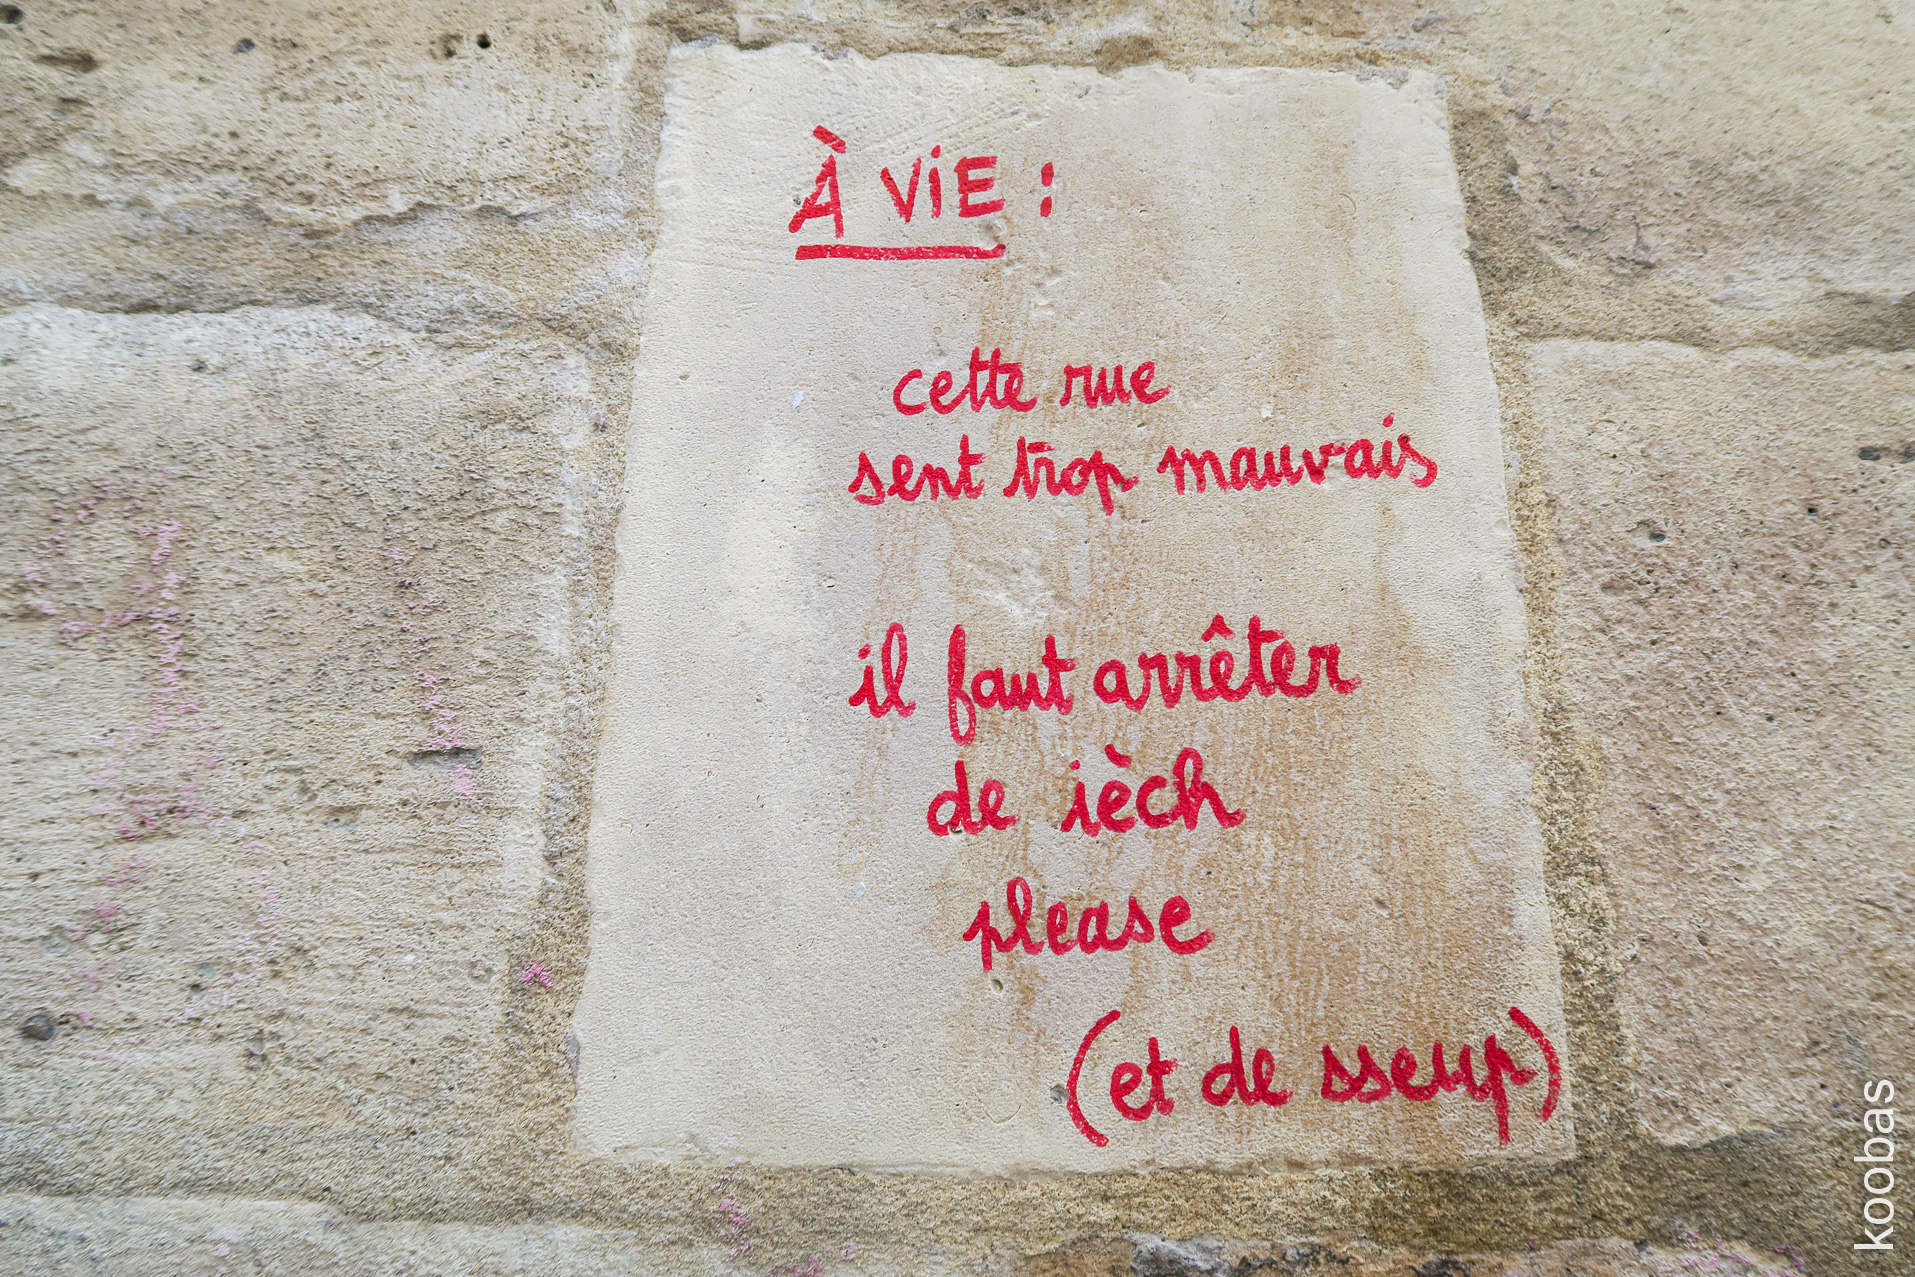 À ViE :
cette rue
sent trop mauvais
il faut arrêter
de ièch
please
(et de sseup)
koobas